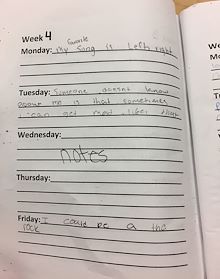 Week 4
favorite
Monday: My song is Left right
Tuesday: Someone doesnt know
about me is that sometimes
i can get mad
Wednesday:
notes
Thursday:
Friday: I could be a the
rock